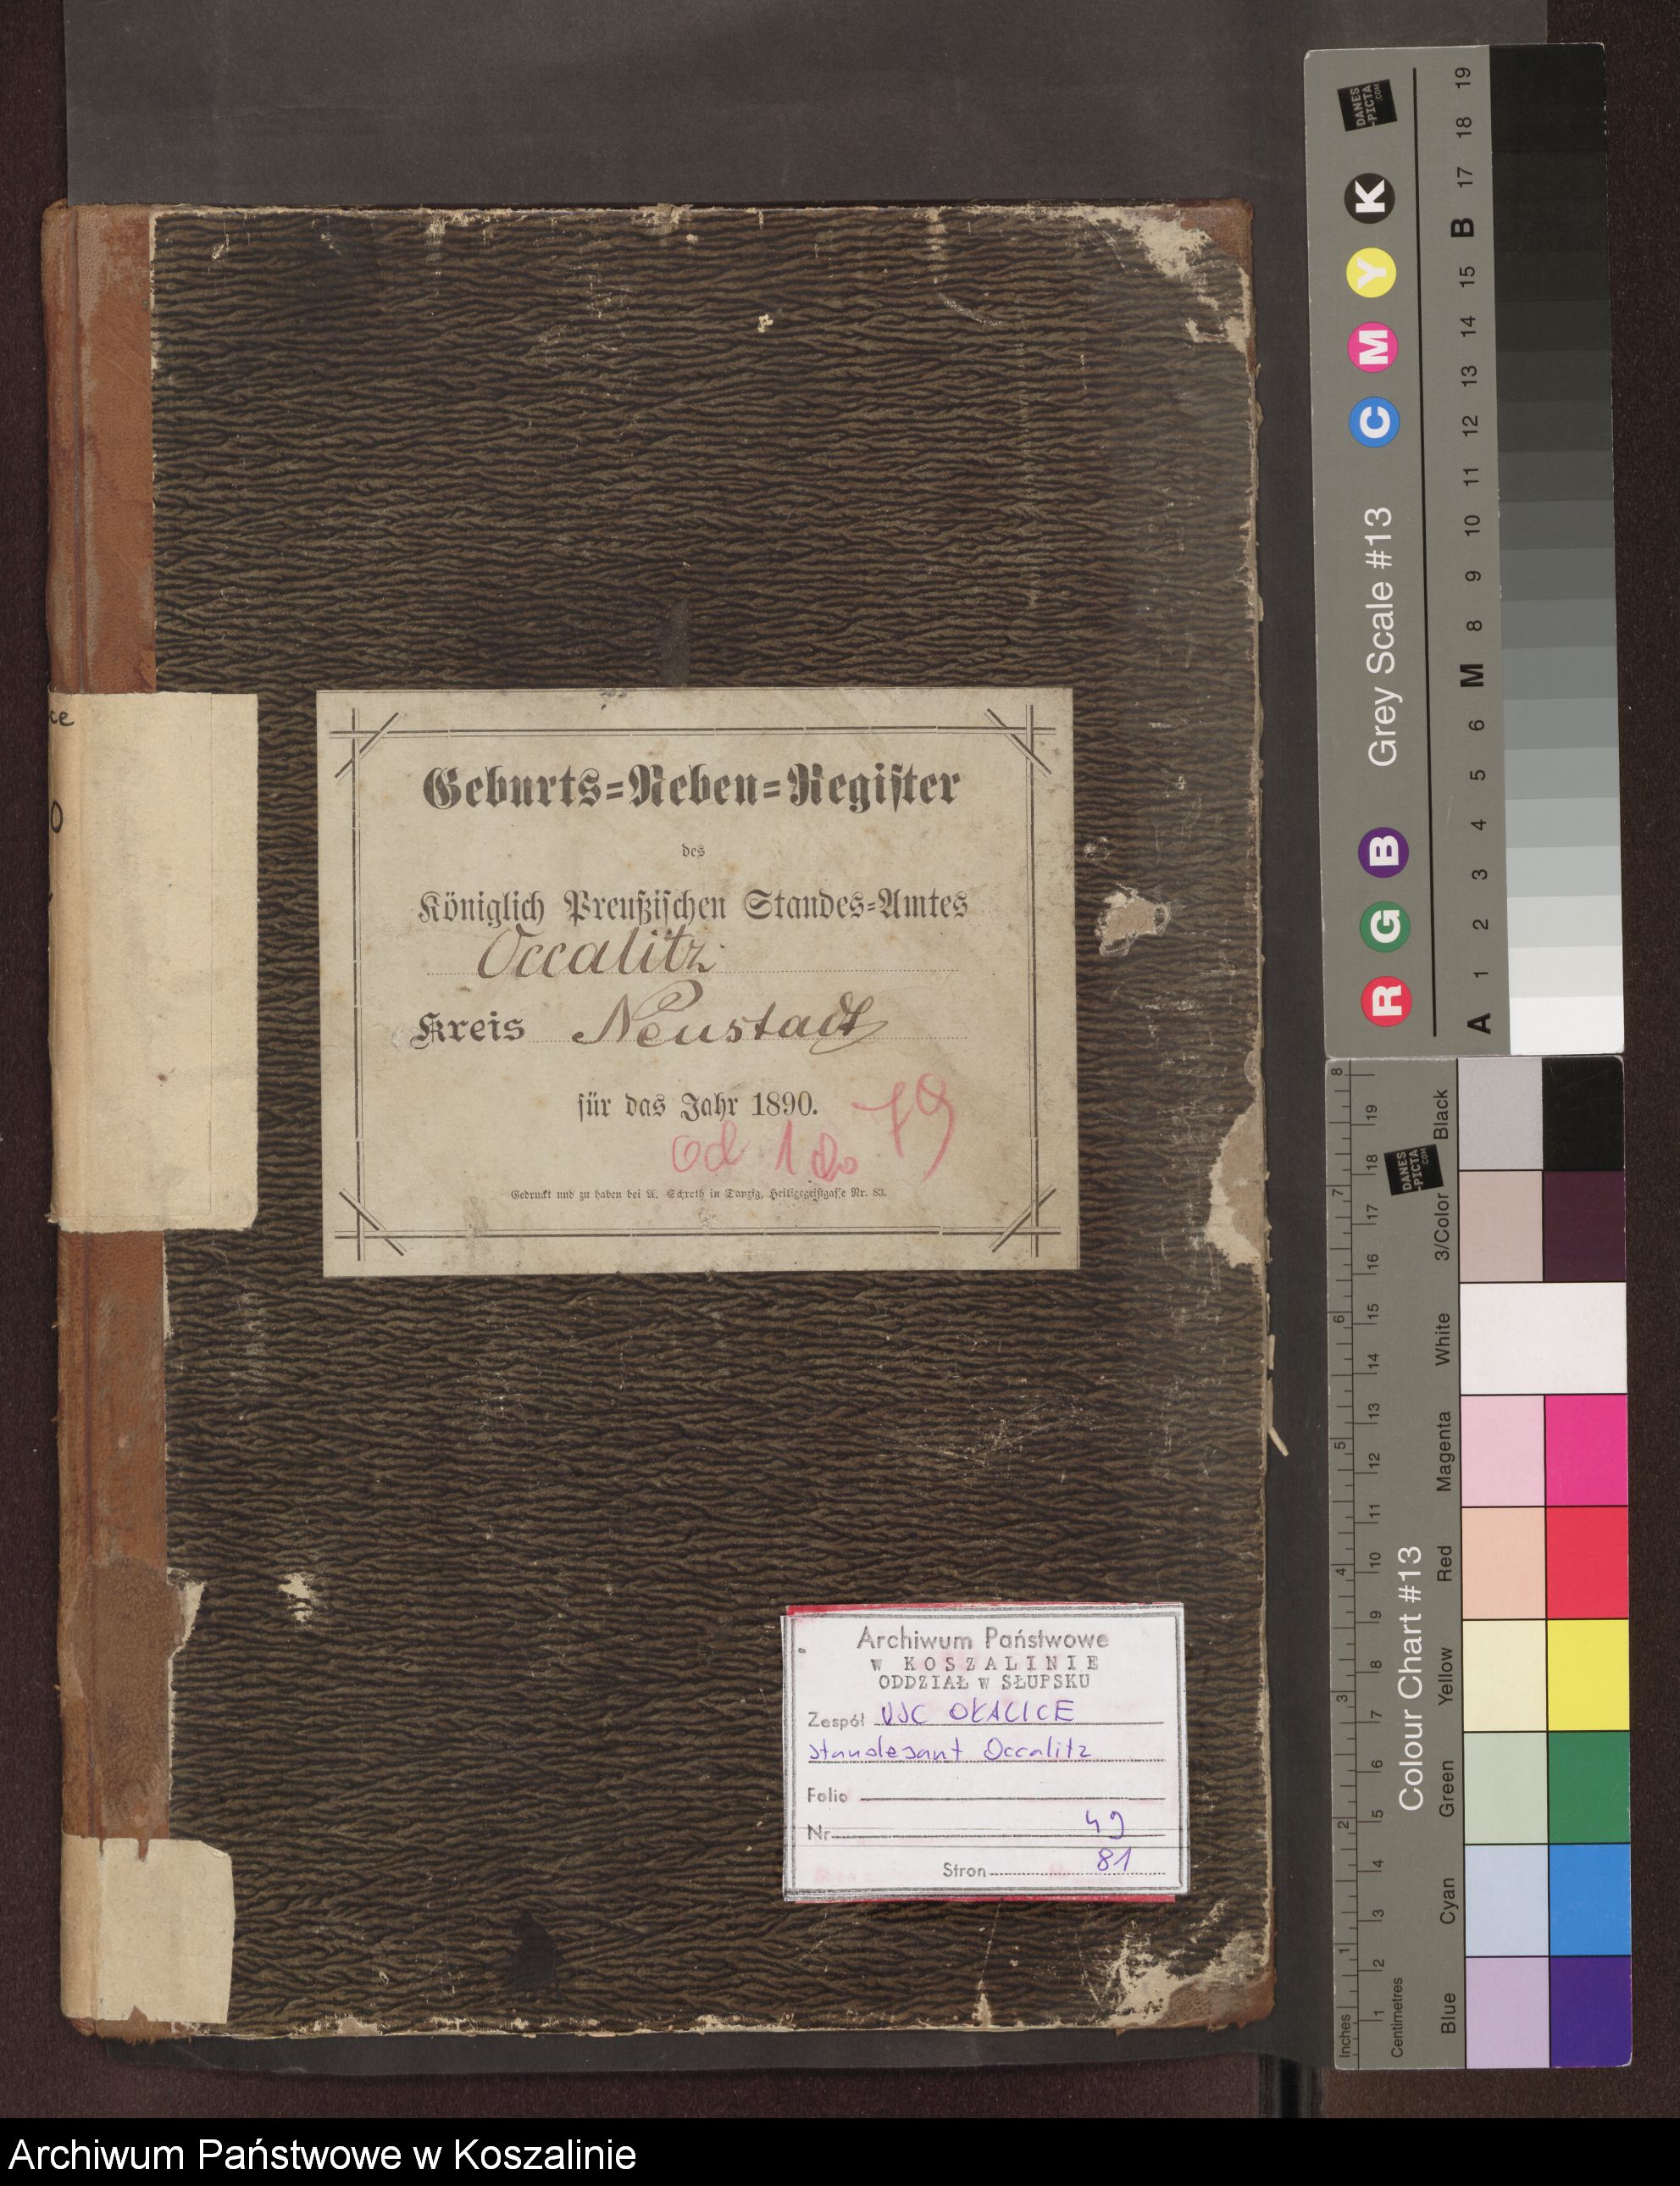 ce
0
Geburts=Neben=Register
des
Königlich Preußischen Standes=Amtes
Occalitz
Kreis Neustadt
für das Jahr 1890.
od 1 do 79
Gedruckt und zu haben bei A. Schroth in Danzig, Heiligegeistgasse Nr. 83.
Archiwum Państwowe
w KOSZALINIE
ODDZIAŁ w SŁUPSKU
Zespół USC OKALICE
Standesamt Occalitz
Folio
Nr 49
Stron 81
DANES
-PICTA
.COM
R G B Grey Scale #13 C M Y K
A 1 2 3 4 5 6 M 8 9 10 11 12 13 14 15 B 17 18 19
Inches 1 2 3 4 5 6 7 8
Centimetres 1 2 3 4 5 6 7 8 9 10 11 12 13 14 15 16 17 18 19
Colour Chart #13
DANES
-PICTA
.COM
Blue Cyan Green Yellow Red Magenta White 3/Color Black
Archiwum Państwowe w Koszalinie